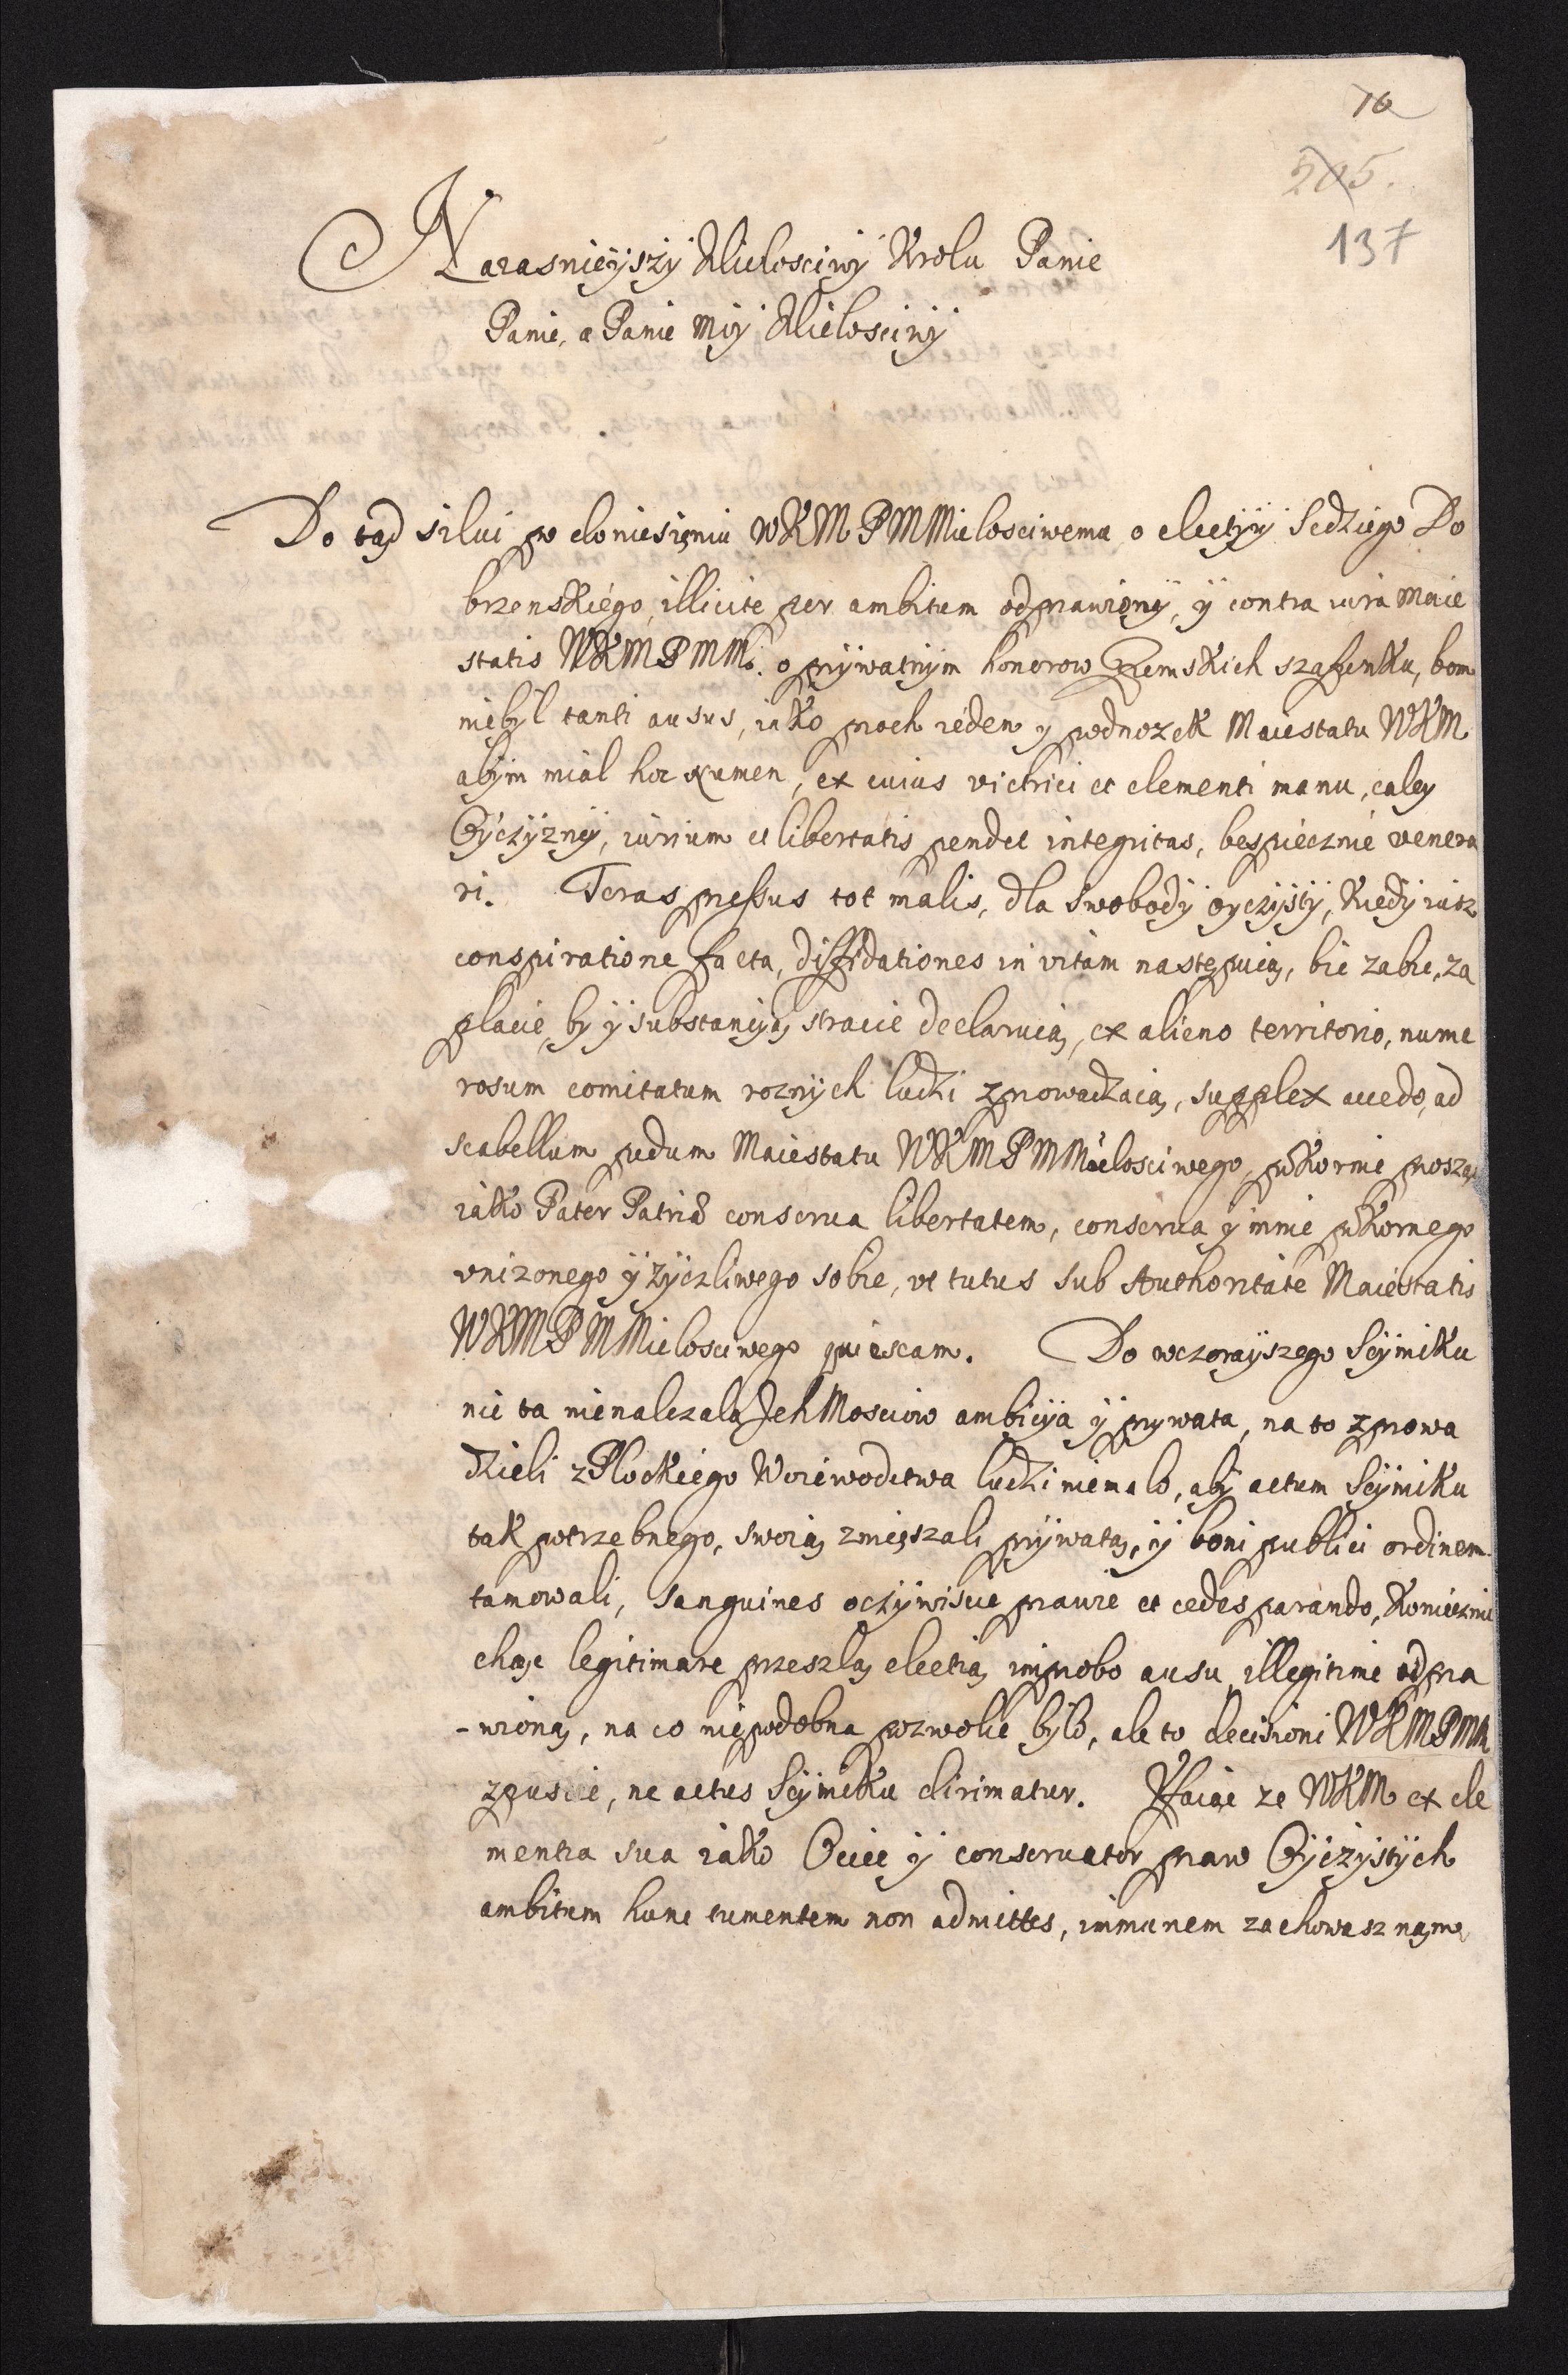 10
205.
137
Naiasnieÿszÿ Miłosciwÿ Krolu Panie
Panie, a Panie Moÿ Miłosciwÿ
Do tąd silui po doniesieniu WKM P M Miłosciwemu o electÿÿ Sędziego Do
brzenskiego, illicite per ambitum odprawionÿ, ÿ contra iura Maie
statis WKMPMM. o prÿwatnÿm honorow Ziemskich szafunku, bom
niebÿł tanti ausus, iako proch ieden y podnozek Maiestatu WKM
abÿm miał hoc numen, ex cuius victrici et clementi manu, całeÿ
Oÿczÿznÿ, iurium et libertatis pendet integritas, bespiecznie venera
ri. Teras pressus tot malis, dla swobodÿ oyczÿstÿ, kiedÿ iusz
conspiratione facta, diffidationes in vitam następuią, bić zabić, za
płacić, by ÿ substanciją stracić declaruią, ex alieno territorio, nume
rosum comitatum roznÿch ludzi zprowadzaią, supplex accedo, ad
scabellum pedum Maiestatu WKMPMMiłosciwego, pokornie proszę
iako Pater Patriæ conserua libertatem, conserua ÿ mnie pokornego
vnizonego ÿ zÿczliwego sobie, vt tutus sub Authoritate Maiestatis
WKMPMMiłosciwego quiescam. Do wczoraÿszego Seÿmiku
nie ta nienalezała IchMosciow ambicÿa ÿ prywata, na to zprowa
dzieli z Płockiego Woiewodctwa ludzi niemało, abÿ actum Seÿmiku
tak potrzebnego, swoią zmięszali prÿwatą, ÿ boni publici ordinem
tamowali, sanguines oczÿwiscie prawie et cedes parando, koniecznie
chcąc legitimare przeszłą electią improbo ausu illegitime odpra
-wioną, na co niepodobna pozwolić bÿło, ale to decisioni WKMPMM
zpuscić, ne actus Seÿmiku dirimatur. Vfaiąc ze WKM ex cle
mentia sua iako Ociec ÿ conseruator praw Oÿczÿstÿch
ambitum hunc tumentem non admittes, immunem zachowasz nąm